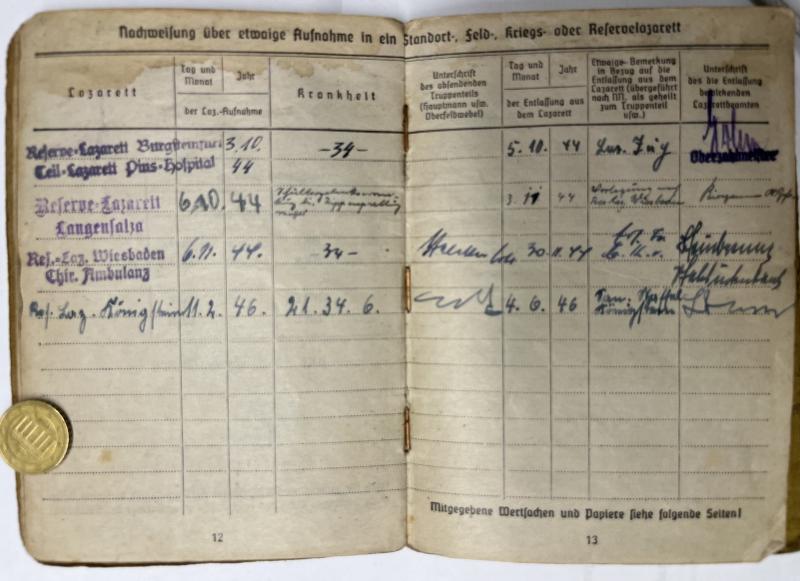 Nachweisung über etwaige Aufnahme in ein Standort-, Feld-, Kriegs- oder Reservelazarett
Lazarett
Tag und Monat
Jahr
der Laz.-Aufnahme
Krankheit
Unterschrift
des absendenden
Truppenteils
(Hauptmann usw.
Oberfeldwebel)
Tag und
Monat
Jahr
der Entlassung aus
dem Lazarett
Etwaige Bemerkung
in Bezug auf die
Entlassung aus dem
Lazarett (übergeführt
nach NN, als geheilt
zum Truppenteil
usw.)
Unterschrift
des die Entlassung
bewirkenden
Lazarettbeamten
Reserve-Lazarett Burgsteinfurt 3.10. -34- 5. 10. 44 Laz. Zug
Teil-Lazarett Pius-Hospital 44 Oberzahlmeister
Reserve-Lazarett 6.10. 44 3. 11 44
Langensalza
Res.-Laz. Wiesbaden 6. 11. 44. -34- 30. 11. 44
Chir. Ambulanz
Res. Laz. Königstein 11. 2. 46. 21. 34. 6. 4. 6. 46
Königstein
Mitgegebene Wertsachen und Papiere siehe folgende Seiten!
12
13